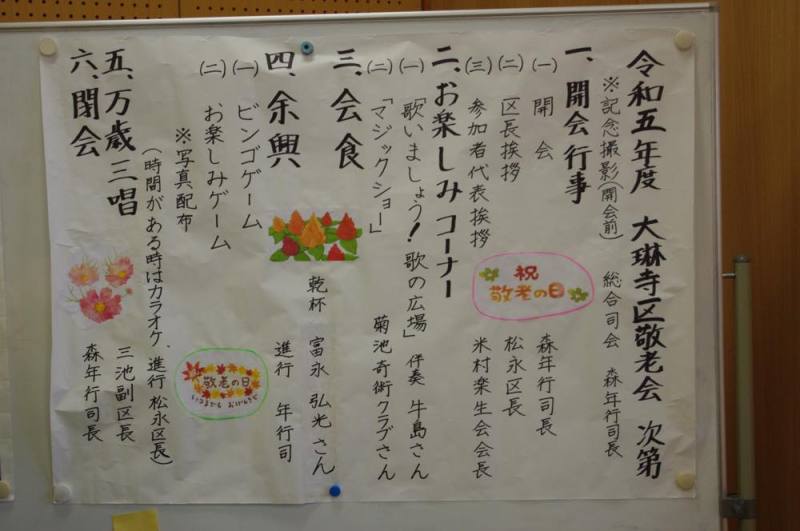 令和五年度 大琳寺区敬老会 次第
※記念撮影(開会前) 総合司会 森年行司長
一、開会行事
(一) 開会 森年行司長
(二) 区長挨拶 松永区長
(三) 参加者代表挨拶 米村楽生会会長
祝
敬老の日
二、お楽しみコーナー
(一)「歌いましょう!歌の広場」 伴奏 牛島さん
(二)「マジックショー」 菊池奇術クラブさん
三、会食 乾杯 富永弘光さん
四、余興 進行 年行司
(一) ビンゴゲーム
(二) お楽しみゲーム
※写真配布
敬老の日
いつまでも おげんきで
(時間がある時はカラオケ、進行 松永区長)
五、万歳三唱 三池副区長
六、閉会 森年行司長